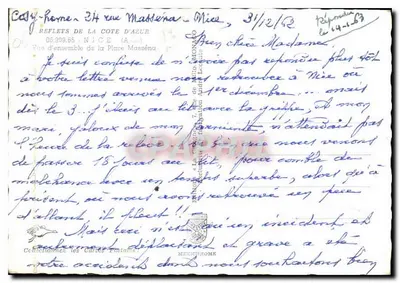 Cosy-home - 24 rue Masséna - Nice, 31/12/62
Répondu le 14-1-63
REFLETS DE LA COTE D'AZUR
NICE
Vue d'ensemble de la Place Masséna
Bien chère Madame,
Je suis confuse de n'avoir pas répondu plus tôt
à votre lettre venue nous retrouver à Nice où
nous sommes arrivés le 1er décembre... mais
dès le 3... j'étais au lit avec la grippe, et mon
mari, jaloux de mon, n'attendait pas
l'heure de la relève, si bien que nous venons
de passer 18 jours au lit, pour comble de
malchance avec un temps superbe, alors qu'à
présent, où nous avons retrouvé un peu
d'allant, il pleut!!
Mais ceci n'est qu'un incident et
autrement déplaisant et grave a été
votre accident dont nous souhaitons bien